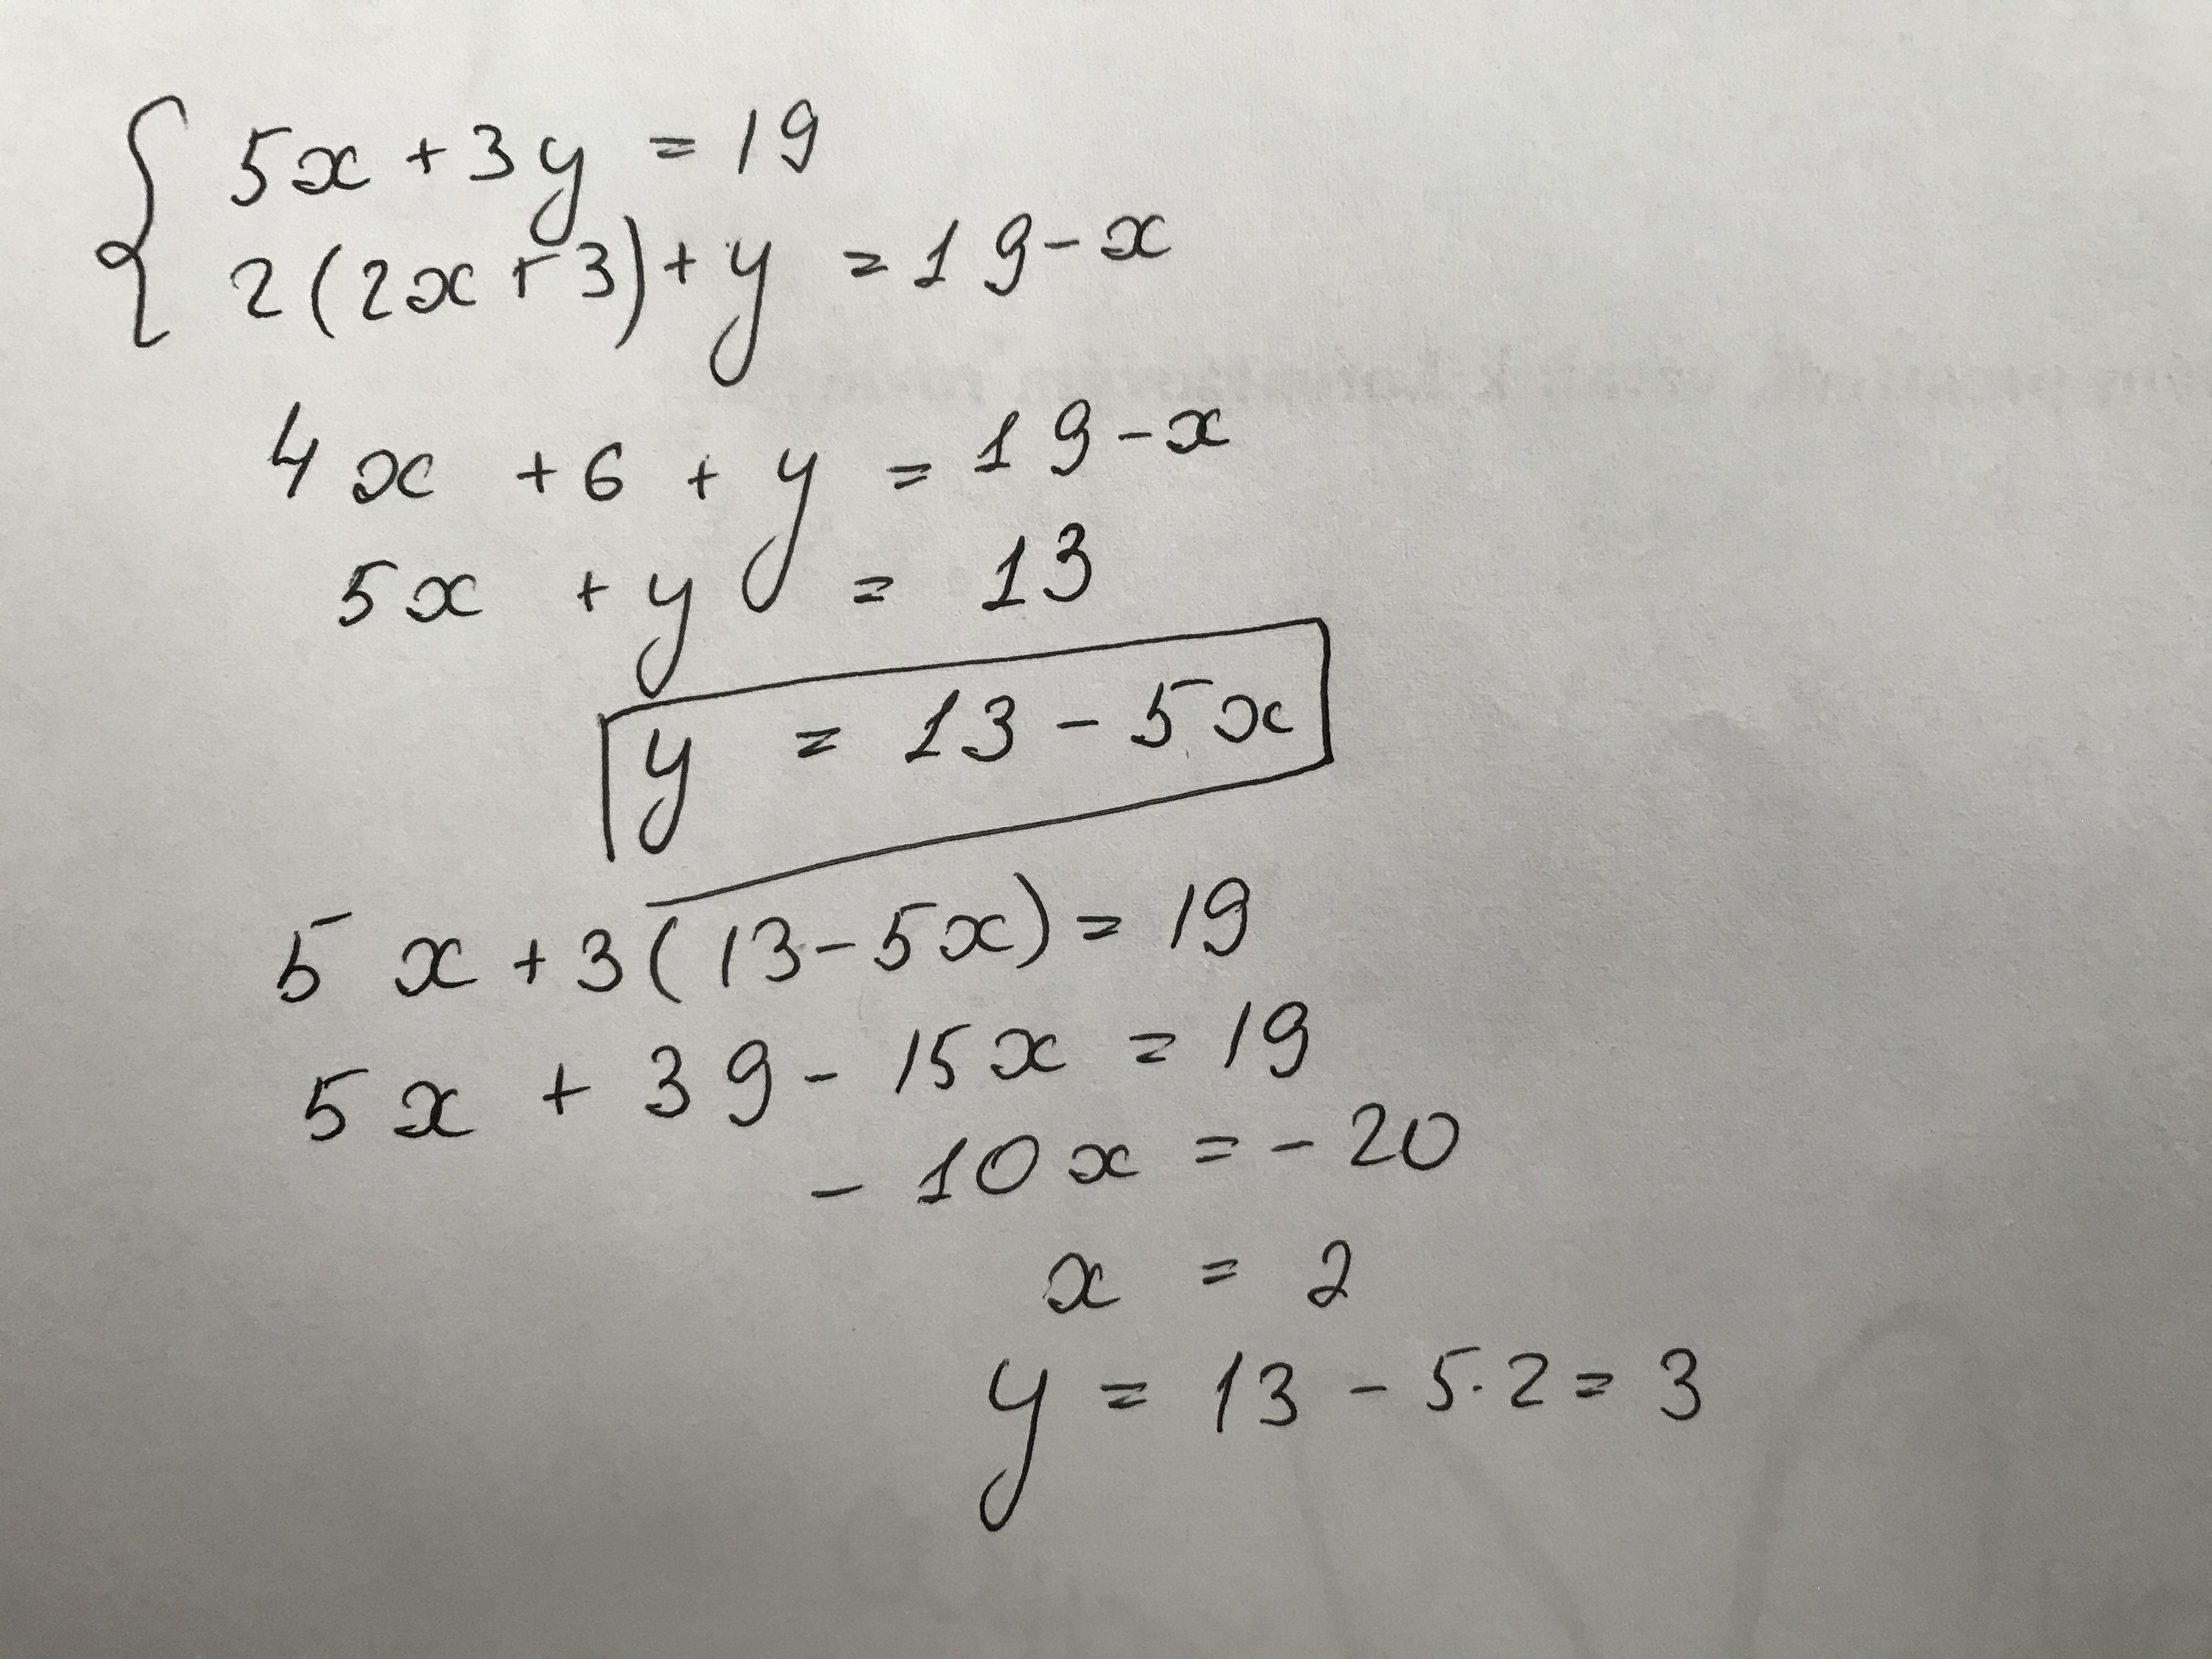 5x + 3y = 19
2(2x + 3) + y = 19 - x
4x + 6 + y = 19 - x
5x + y = 13
y = 13 - 5x
5x + 3(13 - 5x) = 19
5x + 39 - 15x = 19
- 10x = - 20
x = 2
y = 13 - 5·2 = 3